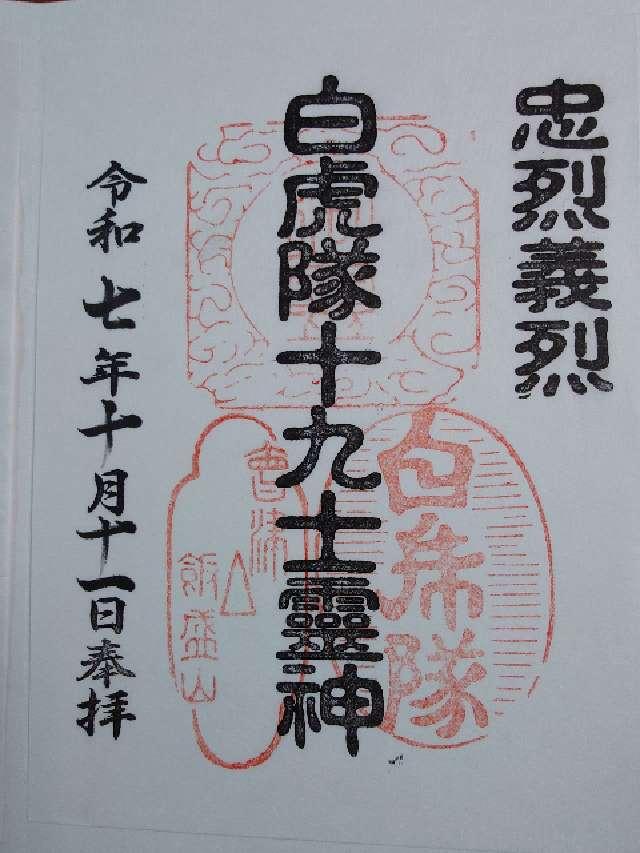 忠烈義烈
白虎隊十九士靈神
白虎隊
會津
飯盛山
令和七年十月十一日奉拝